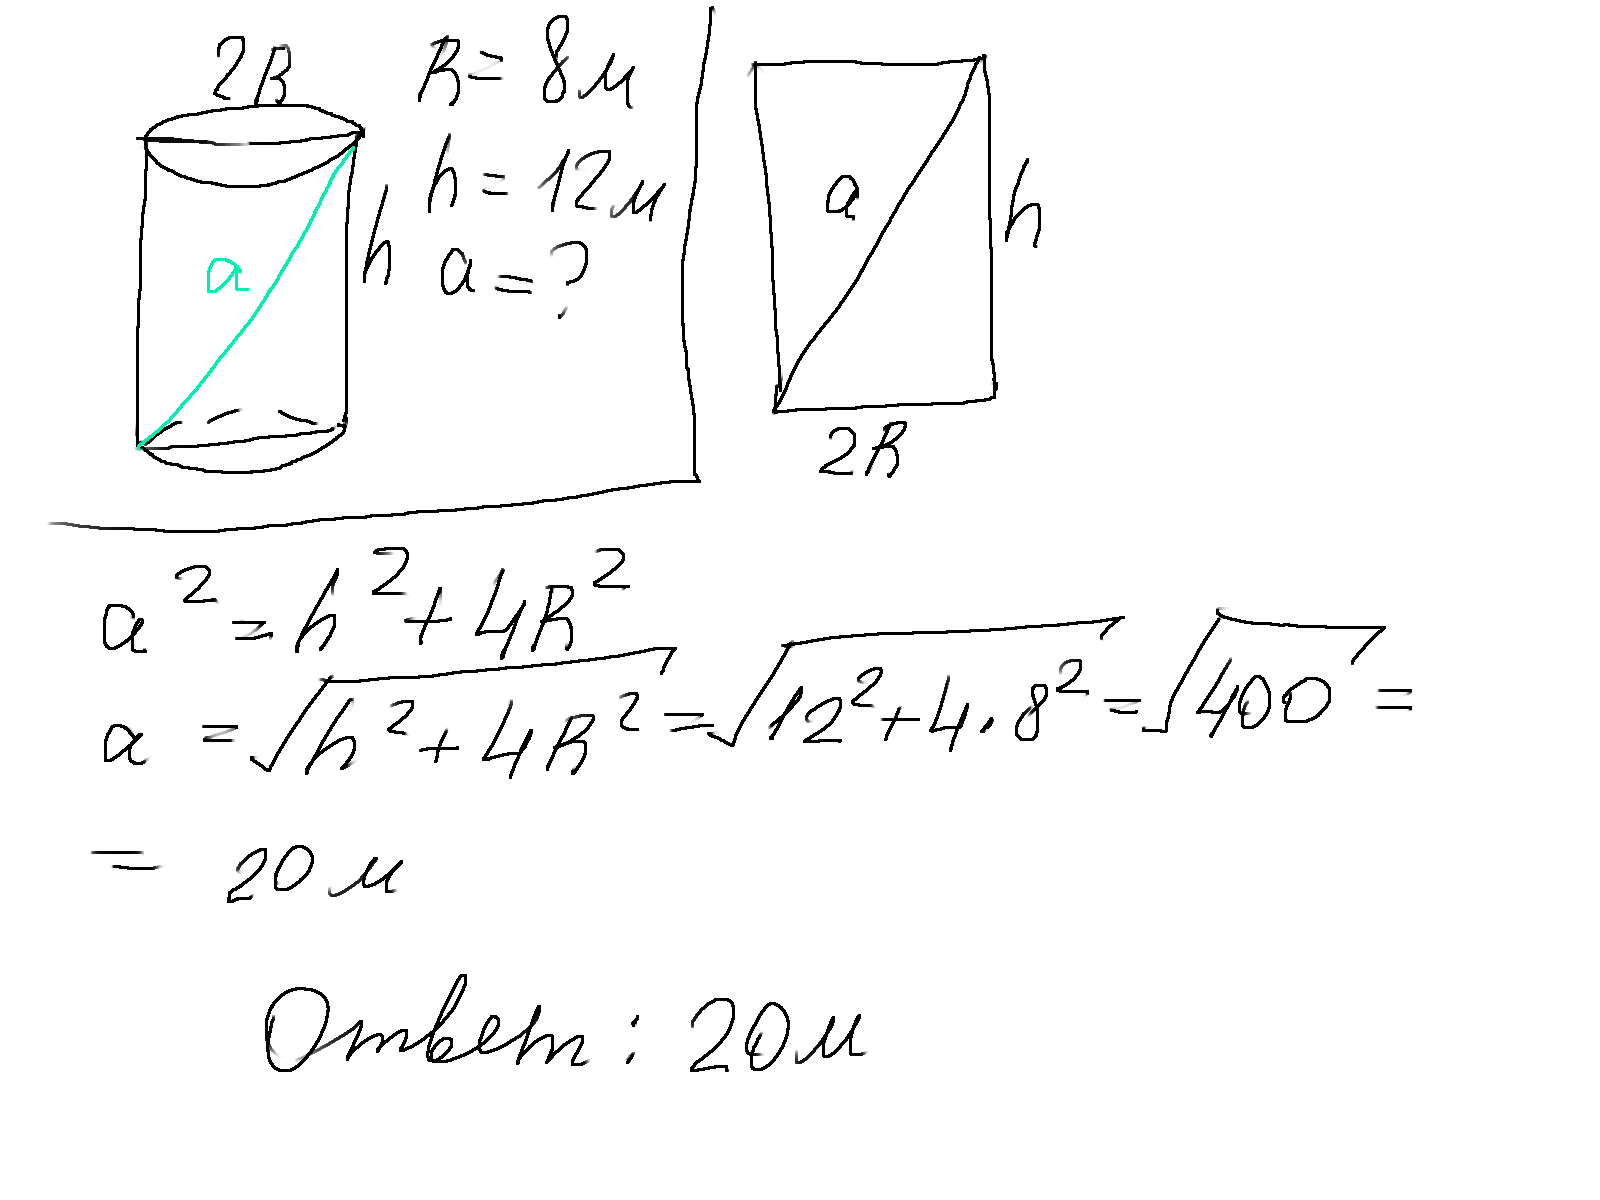 2R
R = 8м
h = 12м
a = ?
a
h
a
h
2R
a² = h² + 4R²
a = √(h² + 4R²) = √(12² + 4·8²) = √400 =
= 20 м
Ответ: 20м